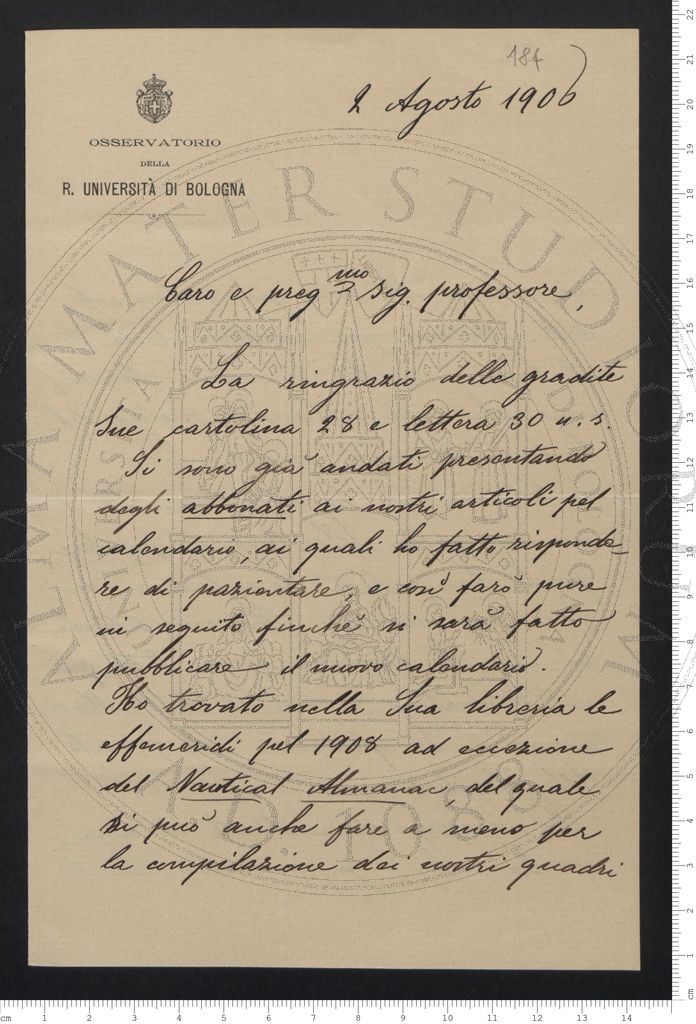 184
2 Agosto 1906
OSSERVATORIO
DELLA
R. UNIVERSITÀ DI BOLOGNA
Caro e preg.mo Sig. professore,
La ringrazio delle gradite
Sue cartolina 28 e lettera 30 u. s.
Si sono già andati presentando
degli abbonati ai nostri articoli pel
calendario, ai quali ho fatto risponde_
re di pazientare, e così farò pure
in seguito finchè si sarà fatto
pubblicare il nuovo calendario.
Ho trovato nella Sua libreria le
effemeridi pel 1908 ad eccezione
del Nautical Almanac, del quale
si può anche fare a meno per
la compilazione dei nostri quadri
ALMA MATER STUDIORUM
A.D. 1088
cm 1 2 3 4 5 6 7 8 9 10 11 12 13 14
cm 1 2 3 4 5 6 7 8 9 10 11 12 13 14 15 16 17 18 19 20 21 22